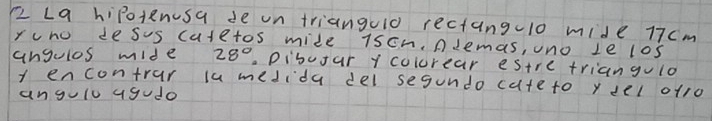 2 La hipotenusa de un triangulo rectangulo mide 17cm
y uno de sus catetos mide 15cm. Ademas, uno de los
angulos mide 28°. Dibujar y colorear estre triangulo
y encontrar la medida del segundo cateto y del otro
angulo agudo